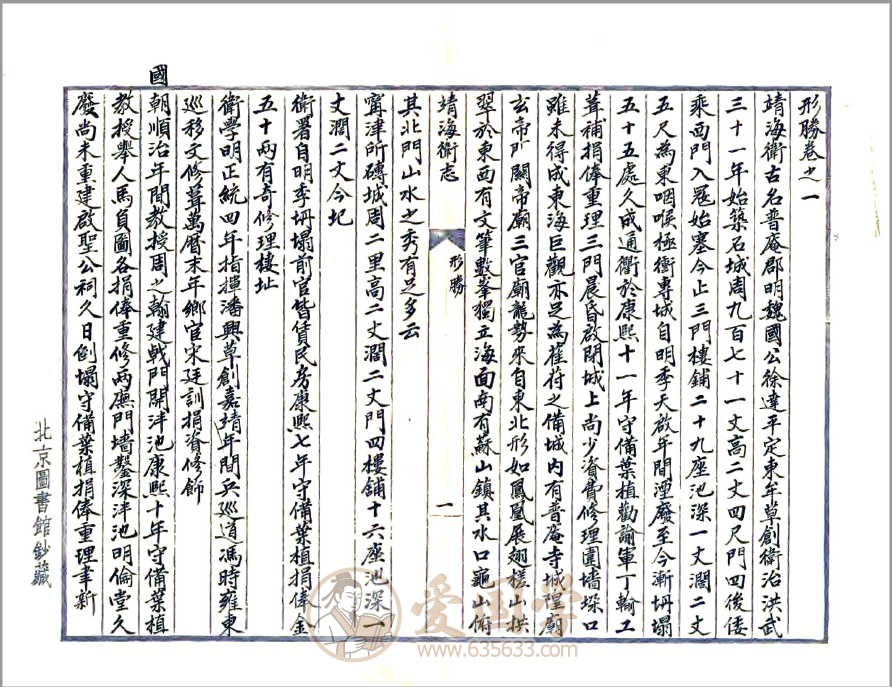 形勝卷之一
靖海衛古名普庵郡明魏國公徐達平定東牟草創衛治洪武
三十一年始築石城周九百七十一丈高二丈四尺門四後倭
乘西門入冦始塞今止三門樓鋪二十九座池深一丈濶二丈
五尺為東咽喉極衝專城自明季天啟年間湮廢至今漸坍塌
五十五處久成通衢於康熙十一年守備葉植勸諭軍丁輸工
葺補捐俸重理三門晨昏啟閉城上尚少資費修理圍墻垜口
雖未得成東海巨觀亦足為萑苻之備城內有普庵寺城隍廟
玄帝廟關帝廟三官廟龍勢來自東北形如鳳凰展翅槎山拱
翠於東西有文筆數峯獨立海面南有蘇山鎮其水口龜山俯
靖海衛志
形勝
一
其北門山水之秀有足多云
甯津所磚城周二里高二丈濶二丈門四樓鋪十六座池深一
丈濶二丈今圮
衛署自明季坍塌前官皆賃民房康熙七年守備葉植捐俸金
五十兩有奇修理樓址
衛學明正統四年指揮潘興草創嘉靖年間兵巡道馮時雍東
巡移文修葺萬曆末年鄉官宋廷訓捐資修飾
國朝順治年間教授周之翰建戟門開泮池康熙十年守備葉植
教授舉人馬負圖各捐俸重修兩廡門墻鑿深泮池明倫堂久
廢尚未重建啟聖公祠久日倒塌守備葉植捐俸重理聿新
北京圖書館鈔藏
爱国学
www.635633.com